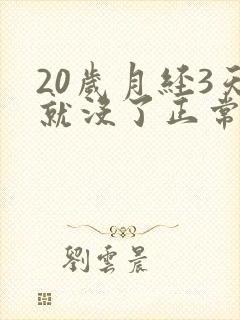 20歲月经3天
就没了正常
劉雲晨